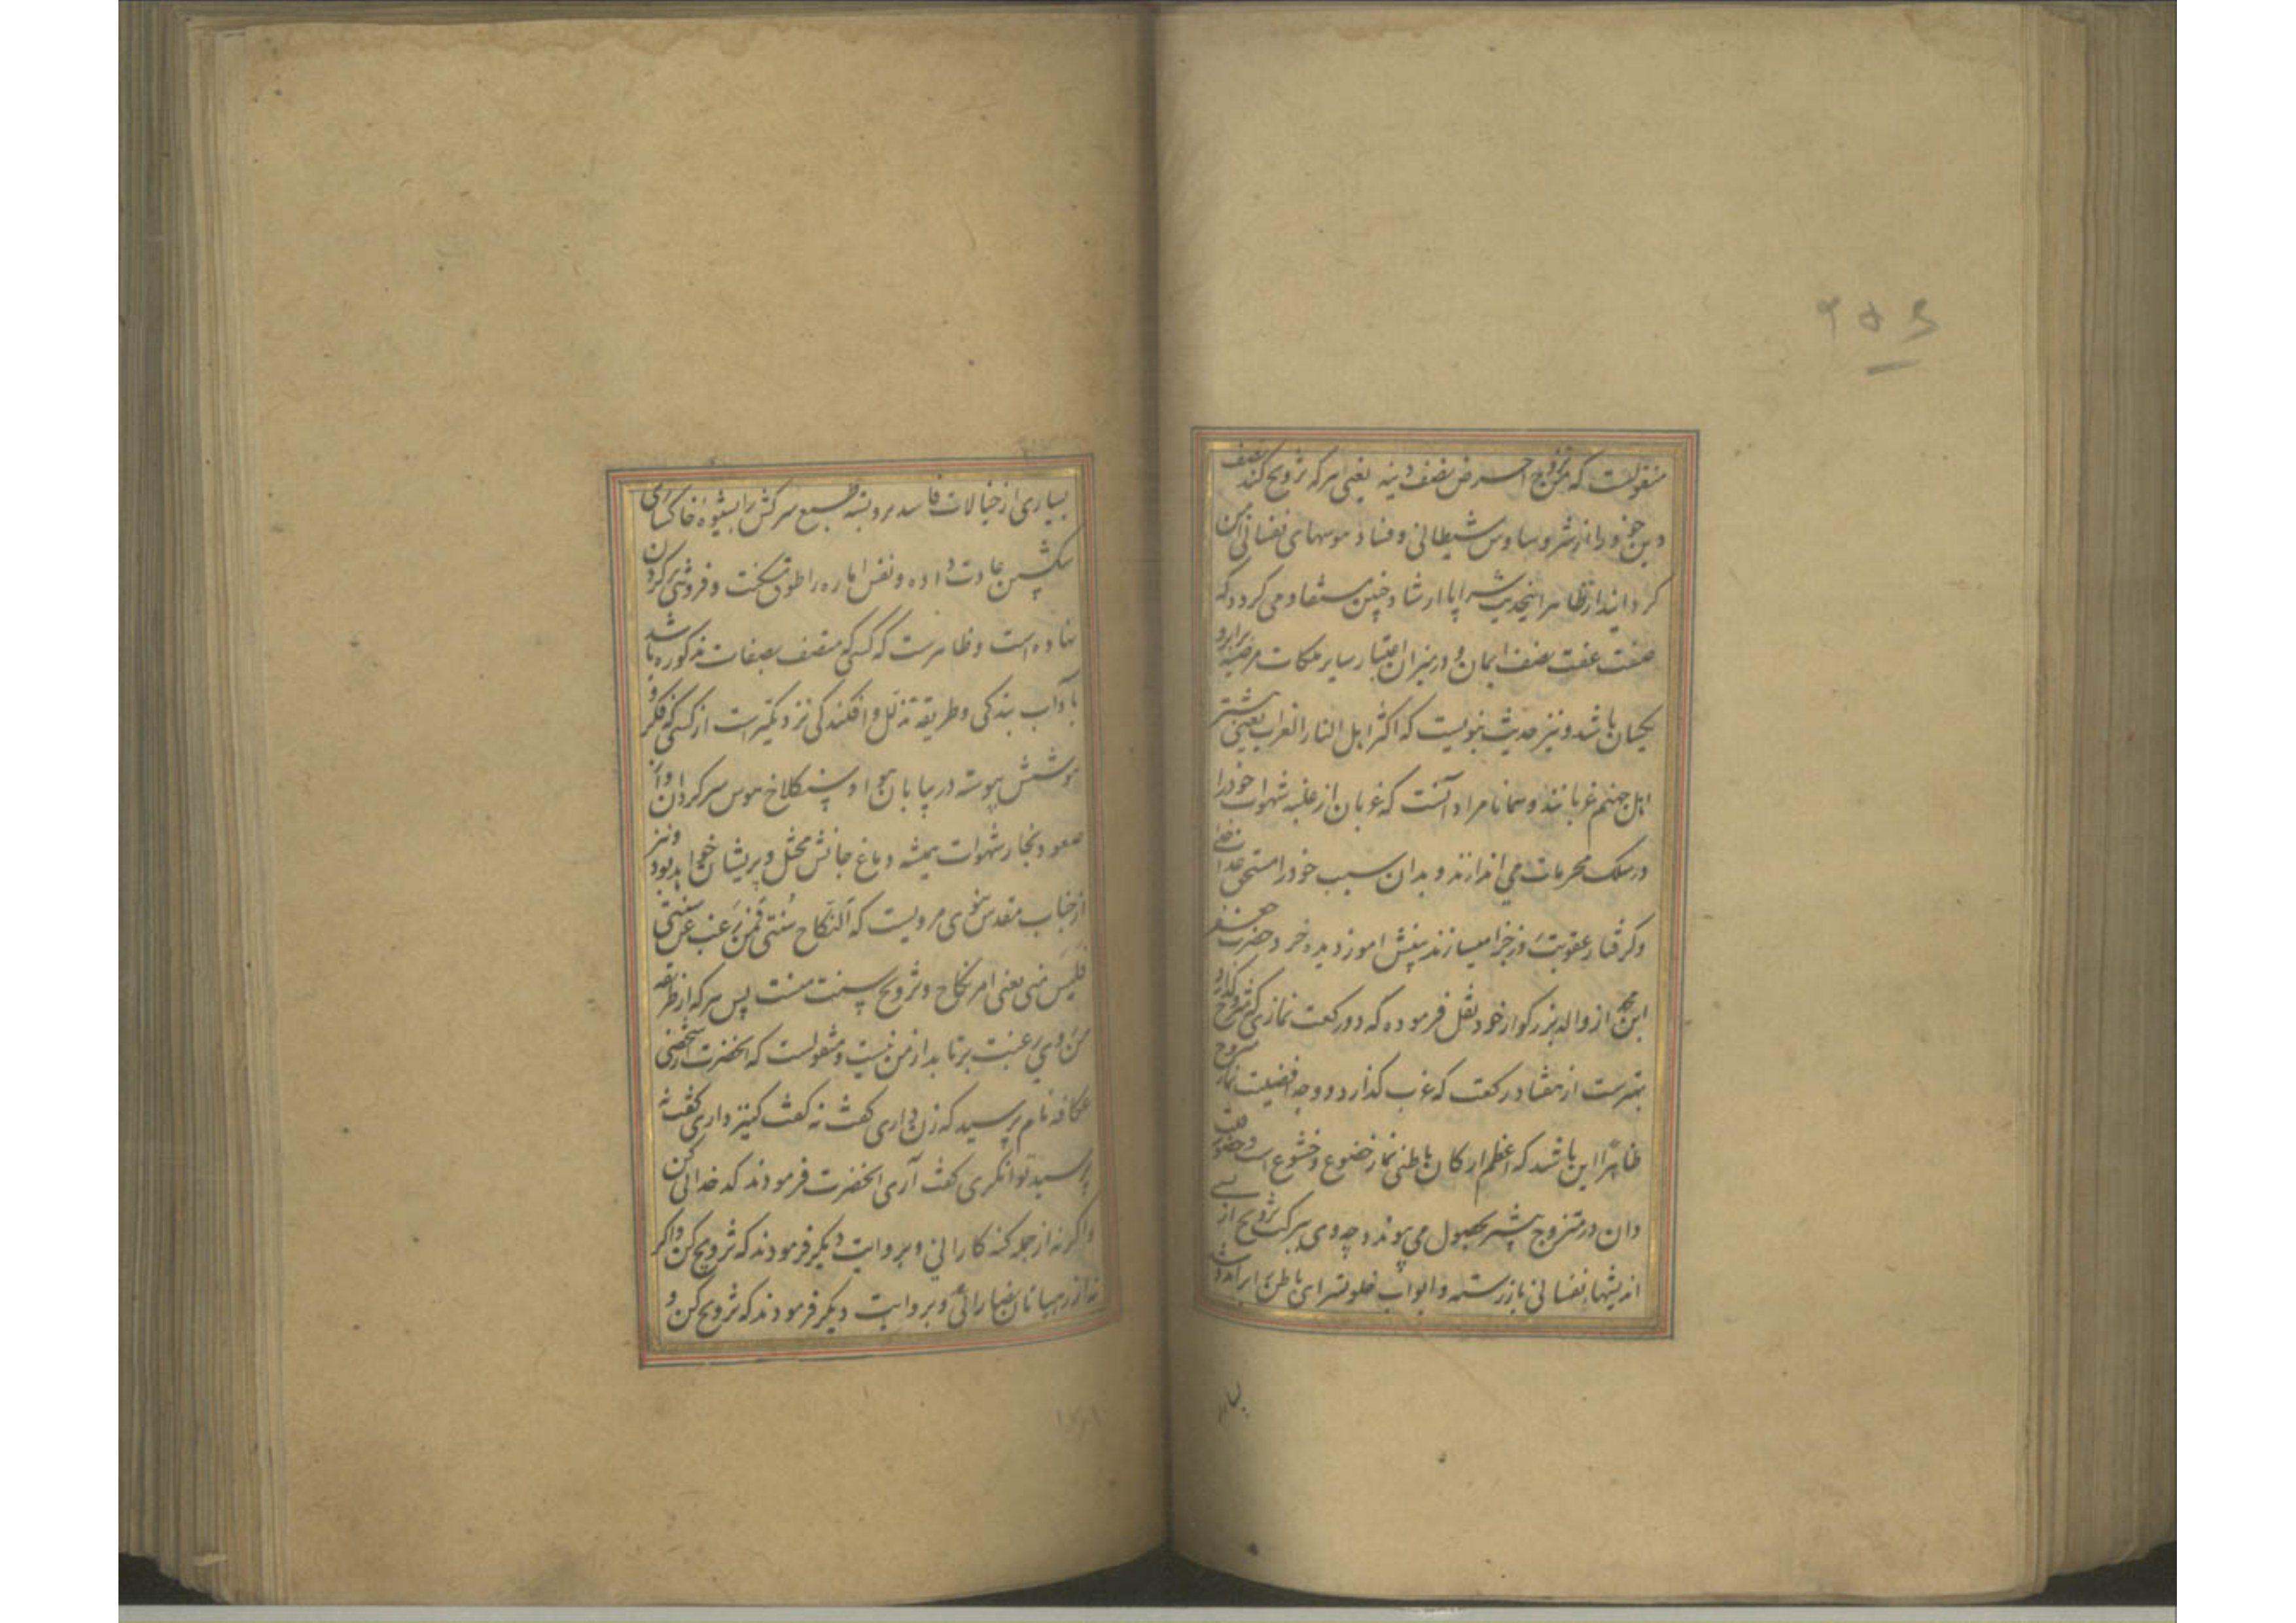 ۲۵۶
منقولست که من تزوج احرض نصف دینه یعنی هر که تزویج کند نصف
دین خود را از شر وساوس شیطانی و فساد هوسهای نفسانی امن
کرداند از ظاهر اینحدیث سراپا ارشاد چنین مستفاد می کردد که
صفت عفت نصف ایمان و در میزان اعتبار سایر ملکات مرضیه برابر و
یکسان باشد و نیز حدیث نبویست که اکثر اهل النار العزاب یعنی بیشتر
اهل جهنم عزبانند و همانا مراد آنست که عزبان از غلبه شهوات خود را
در مهلک محرمات می اندازند و بدان سبب خود را مستحق عذاب
و کرفتار عقوبت روز جزا میسازند بینش اموز دیده خرد حضرت جعفر
ابن محمد از والد بزرکوار خود نقل فرموده که دو رکعت نمازی که متزوج کذارد
بهترست از هفتاد رکعت که عزب کذارد و وجه افضلیت نماز متزوج
ظاهرا این باشد که اعظم ارکان باطنی نماز خضوع و خشوع است و حضور قلب
و ان در متزوج بیشتر بحصول می پیوندد چه وی ببرکت تزویج از بسی
اندیشهاء نفسانی باز رسته و ابواب خلوتسرای باطن را بر آمد و شد
بسیاری
بسیاری از خیالات فاسد بر و بسته طبع سرکش را بشیوه خاکساری
سکشپین عادت داده و نفس اماره را طوق مسکنت و فروتنی بر کردن
نهاده است و ظاهرست که کسی که متصف بصفات مذکوره باشد
باداب بندکی و طریقه تذلل و افکندکی نزدیکترست از کسی که فکر و
هوشش پیوسته در بیابان هوا و سنکلاخ هوس سرکردان و از
صعود بخار شهوات همیشه دماغ جانش مختل و پریشان خواهد بود و نیز
از جناب مقدس نبوی مرویست که النکاح سنتی فمن رغب عن سنتی
فلیس منی یعنی امر نکاح و تزویج سنت منست پس هر که از طریقه
من روی رغبت برتابد از من نیست و منقولست که انحضرت از شخصی
عکافه نام پرسید که زن داری کفت نه کفت کنیز داری کفت نه
پرسید توانکری کفت آری انحضرت فرمودند که کدخدائی کن
و اکر نه از جمله کنه کارانی و بروایت دیکر فرمودند که تزویج کن و اکر
نه از رهبانان نصارائی و بروایت دیکر فرمودند که تزویج کن و